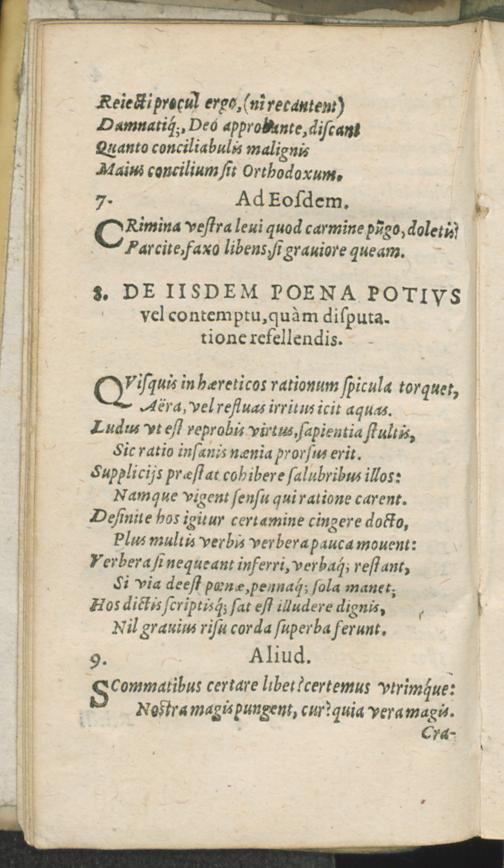 Reiecti procul ergo, (ni recantent)
Damnatiq́;, Deo approbante, discant
Quanto conciliabulis malignis
Maius concilium sit Orthodoxum.
7. Ad Eosdem.
CRimina vestra leui quod carmine pūgo, doletis?
Parcite, faxo libens, si grauiore queam.
8. DE IISDEM POENA POTIVS
vel contemptu, quàm disputa-
tione refellendis.
QVisquis in hæreticos rationum spicula torquet,
Aëra, vel refluas irritus icit aquas.
Ludus vt est reprobis virtus, sapientia stultis,
Sic ratio insanis nænia prorsus erit.
Supplicijs præstat cohibere salubribus illos:
Namque vigent sensu qui ratione carent.
Desinite hos igitur certamine cingere docto,
Plus multis verbis verbera pauca mouent:
Verbera si nequeant inferri, verbaq́; restant,
Si via deest pœnæ, pennaq́; sola manet;
Hos dictis scriptisq́; sat est illudere dignis,
Nil grauius risu corda superba ferunt.
9. Aliud.
SCommatibus certare libet? certemus vtrimq́ue:
Nostra magis pungent, cur? quia vera magis.
Cra-